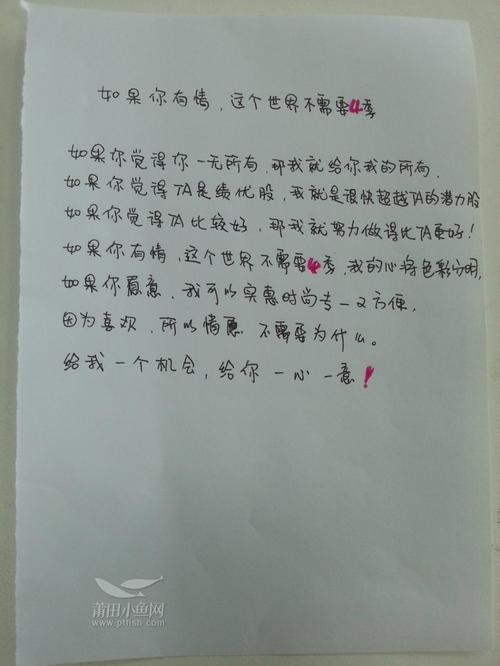 如果你有情，这个世界不需要4季
如果你觉得你一无所有，那我就给你我的所有，
如果你觉得TA是绩优股，我就是很快超越TA的潜力股
如果你觉得TA比较好，那我就努力做得比TA更好！
如果你有情，这个世界不需要4季，我的心将色彩分明，
如果你愿意，我可以实惠时尚专一又方便，
因为喜欢，所以情愿，不需要为什么。
给我一个机会，给你一心一意！
莆田小鱼网
www.ptfish.com